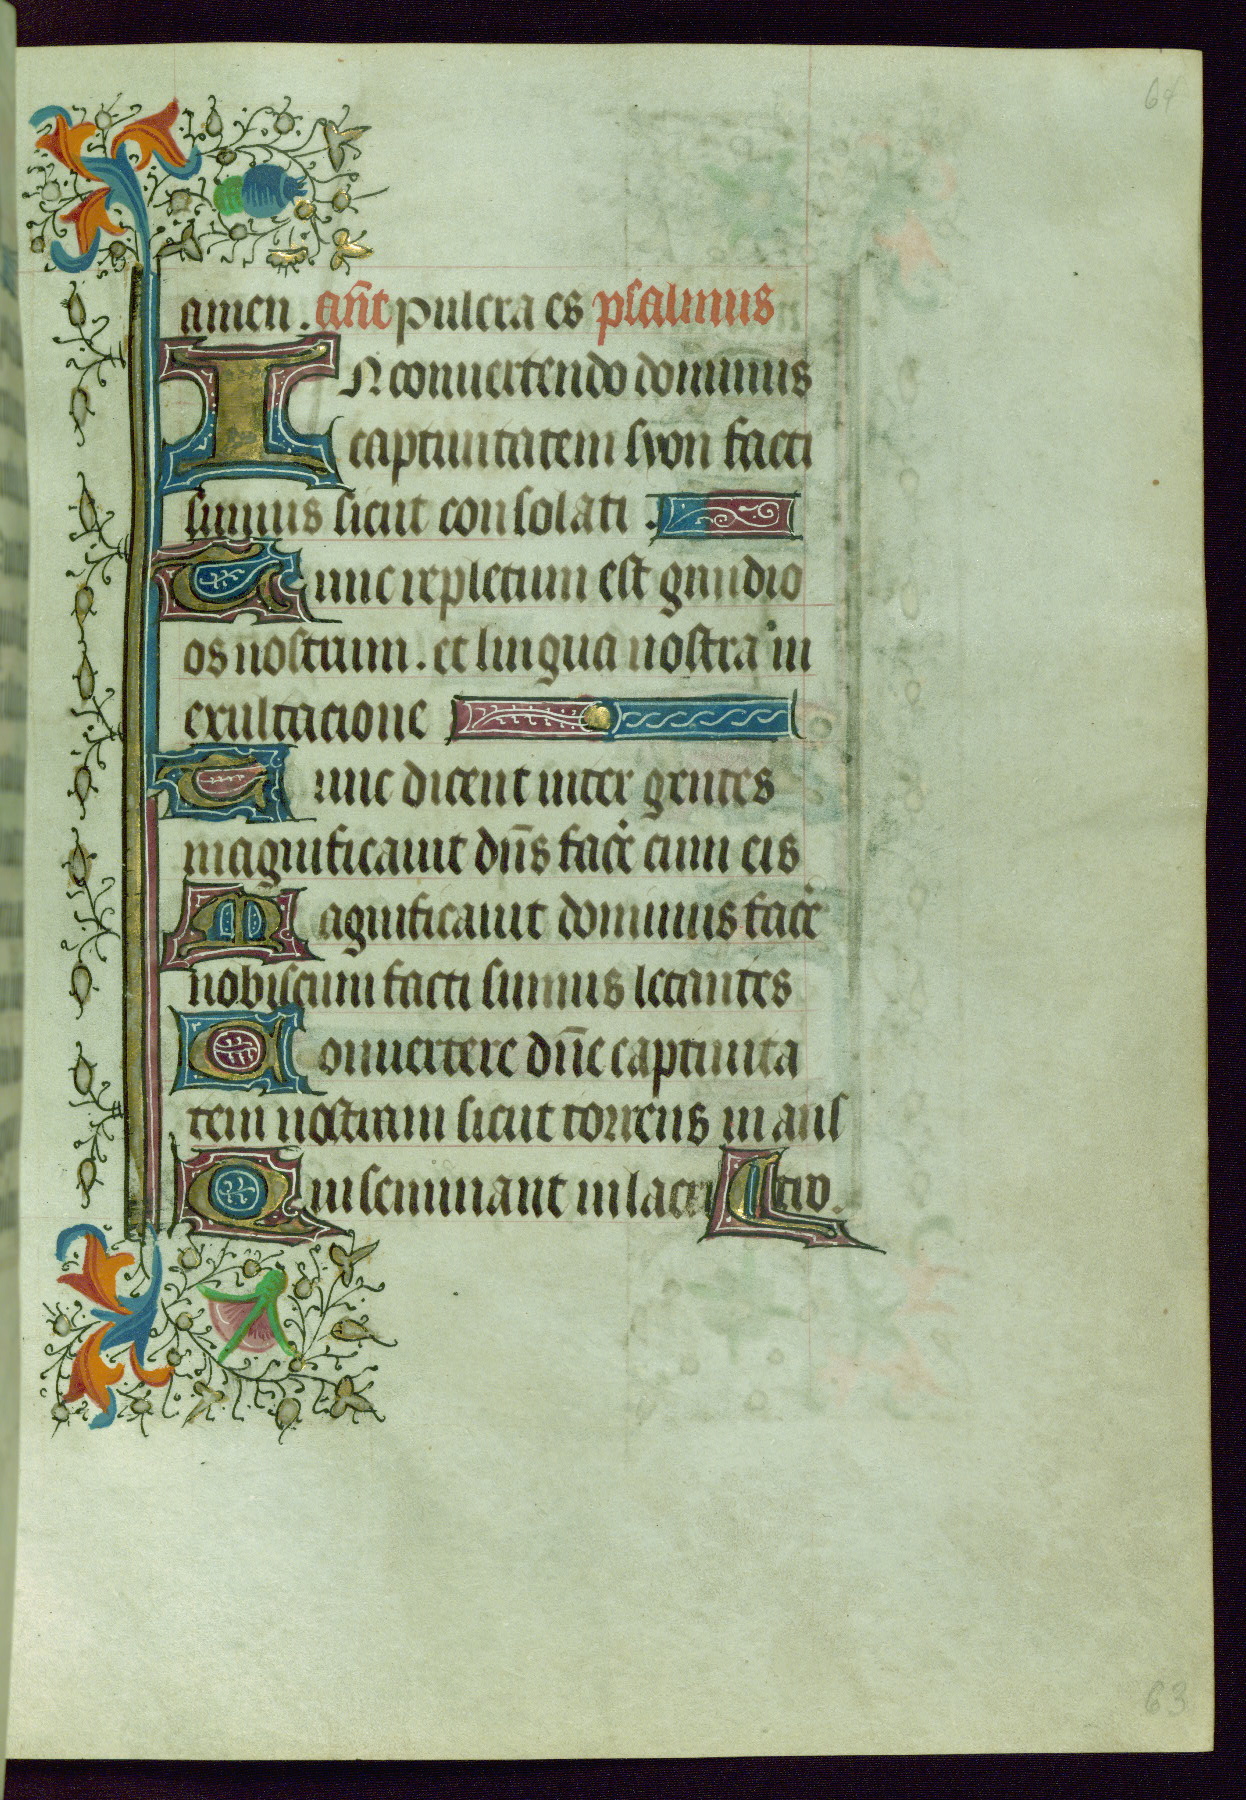 amen. añt pulcra es psalmus
IN conuertendo dominus
captiuitatem syon facti
sumus sicut consolati.
Tunc repletum est gaudio
os nostrum. et lingua nostra in
exultacione
Tunc dicent inter gentes
magnificauit dn̄s facẻ cum eis
Magnificauit dominus facẻ
nobiscum facti sumus letantes
Conuertere dn̄e captiuita
tem nostram sicut torrens in aus
Qui seminant in lacri tro.
64
63